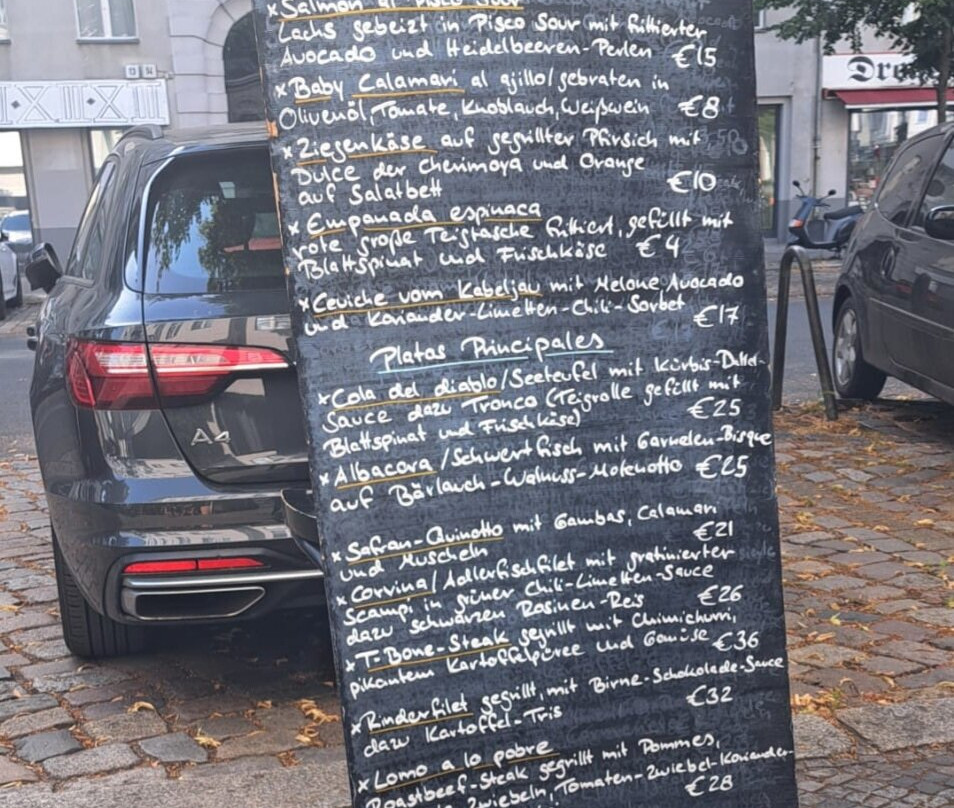 x Salmon al Pisco Sour
Lachs gebeizt in Pisco Sour mit frittierter
Avocado und Heidelbeeren-Perlen €15
x Baby Calamari al ajillo/gebraten in
Olivenöl, Tomate, Knoblauch, Weißwein €8
x Ziegenkäse auf gegrillter Pfirsich mit
Dulce der Cherimoya und Orange
auf Salatbett €10
x Empanada espinaca
rote große Teigtasche frittiert, gefüllt mit
Blattspinat und Frischkäse €4
x Ceviche vom Kabeljau mit Melone, Avocado
und Koriander-Limetten-Chili-Sorbet €17
Platas Principales
x Cola del diablo/Seeteufel mit Kürbis-Dattel-
Sauce dazu Tronco (Teigrolle gefüllt mit
Blattspinat und Frischkäse) €25
x Albacora/Schwertfisch mit Garnelen-Bisque
auf Bärlauch-Walnuss-Motenotto €25
x Safran-Quinotto mit Gambas, Calamari
und Muscheln €21
x Corvina/Adlerfischfilet mit gratinierter
Scampi in grüner Chili-Limetten-Sauce
dazu schwarzen Rosinen-Reis €26
x T-Bone-Steak gegrillt mit Chimichurri,
pikantem Kartoffelpüree und Gemüse €36
x Rinderfilet gegrillt, mit Birne-Schokolade-Sauce
dazu Kartoffel-Tris €32
x Lomo a lo pobre
Roastbeef-Steak gegrillt mit Pommes,
Zwiebeln, Tomaten-Zwiebel-Koriander-
€28
A4
13 14